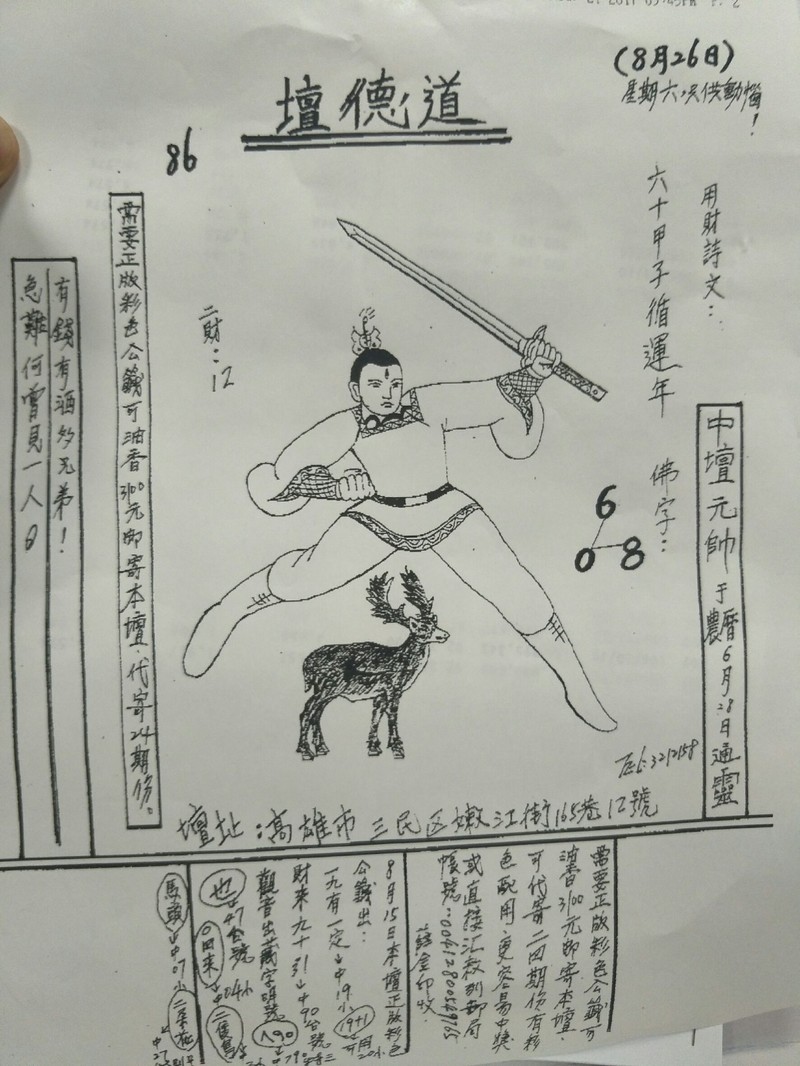 (8月26日)
星期六只供動惱!
道德壇
86
用財詩文:
六十甲子循運年
佛字:
6
0 8
中壇元帥于農曆6月28日通靈
二財:12
需要正版彩色公籤可油香3100元即寄本壇.代寄24期份。
有錢有酒多兄弟!
急難何曾見一人
壇址:高雄市三民区嫩江街165巷12號
需要正版彩色公籤可
油香3100元即寄本壇.
可代寄二四期份有彩
色配用.更容易中獎
或直接汇款到郵局
帳號:
8月15日本壇正版彩色
公籤出:
一九有一定↓中19小
19+1
可用20小
財來九十引↓中90台號
觀音出萬字明號
人90
也
↓47台號
回來
↓04小
二隻鳥
馬頭
↓中07小